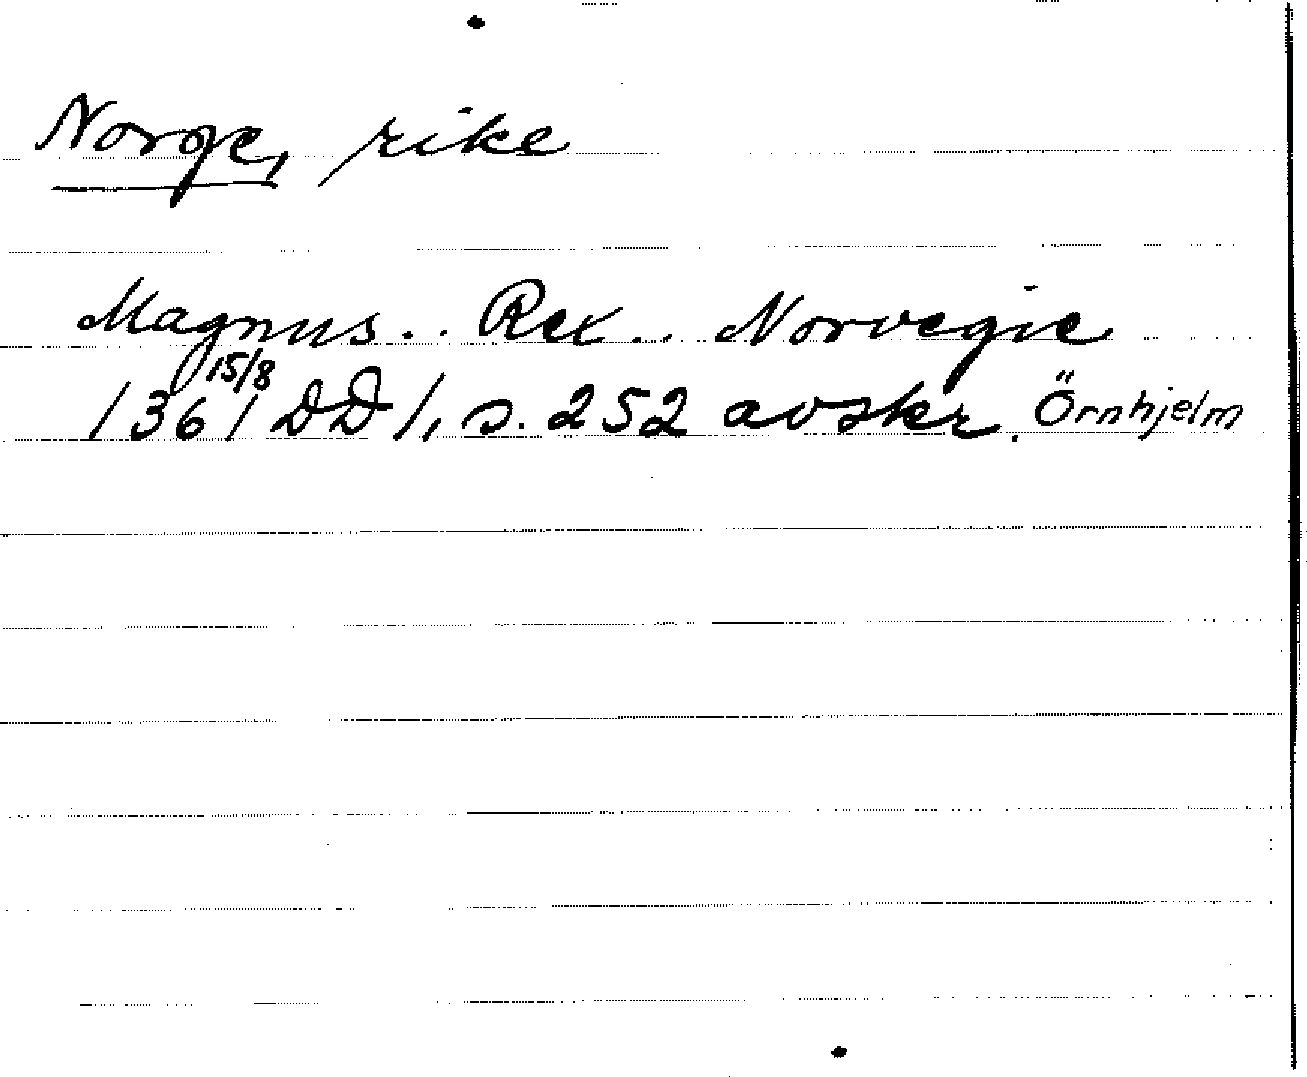 Norge, rike
Magnus.. Rex.. Norvegie
1361 15/8 DD 1, s. 252 avskr. Örnhjelm